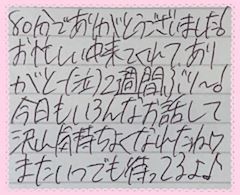 80分でありがとうございました!
お忙しい中来てくれて、あり
がとー(泣)2週間ぶり〜!
今日もいろんなお話して
沢山気持ちよくなれたね♡
またいつでも待ってるよ♪